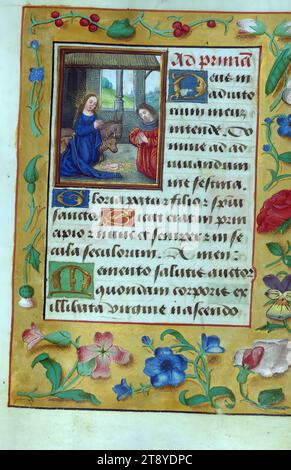 Ad primam
Deus in
adiuto
rium meum
intende. Do
mine ad ad
iuuandum
me festina.
Gloria patri et filio et spiri
sancto Sicut erat in prin
cipio et nunc et semper et in se
cula seculorum. Amen.
Memento salutis auctor
quondam corporis ex
illibata virgine nascendo
alamy
Image ID: 2T8YDPC
www.alamy.com